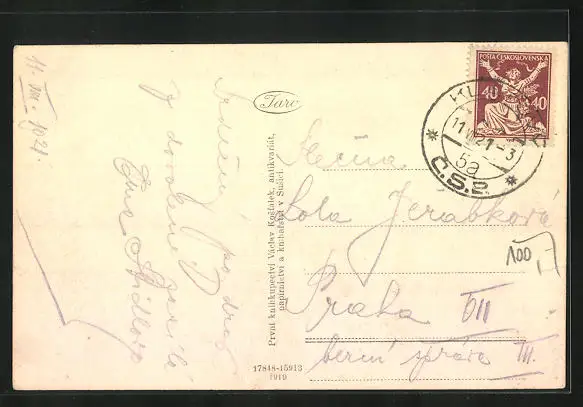 11. VIII. 1921.
Srdečný pozdrav
z dovolené
Taro
První knihkupectví Václav Košťálek, antikvariát,
papírnictví a knihařství v Sušici.
17848-15913
1919
POŠTA ČESKOSLOVENSKÁ
40 40
11.VIII.21-3
5a
Č.S.P.
Slečna
Lola Jeřábková
Praha VII
berní správa III.
100,-